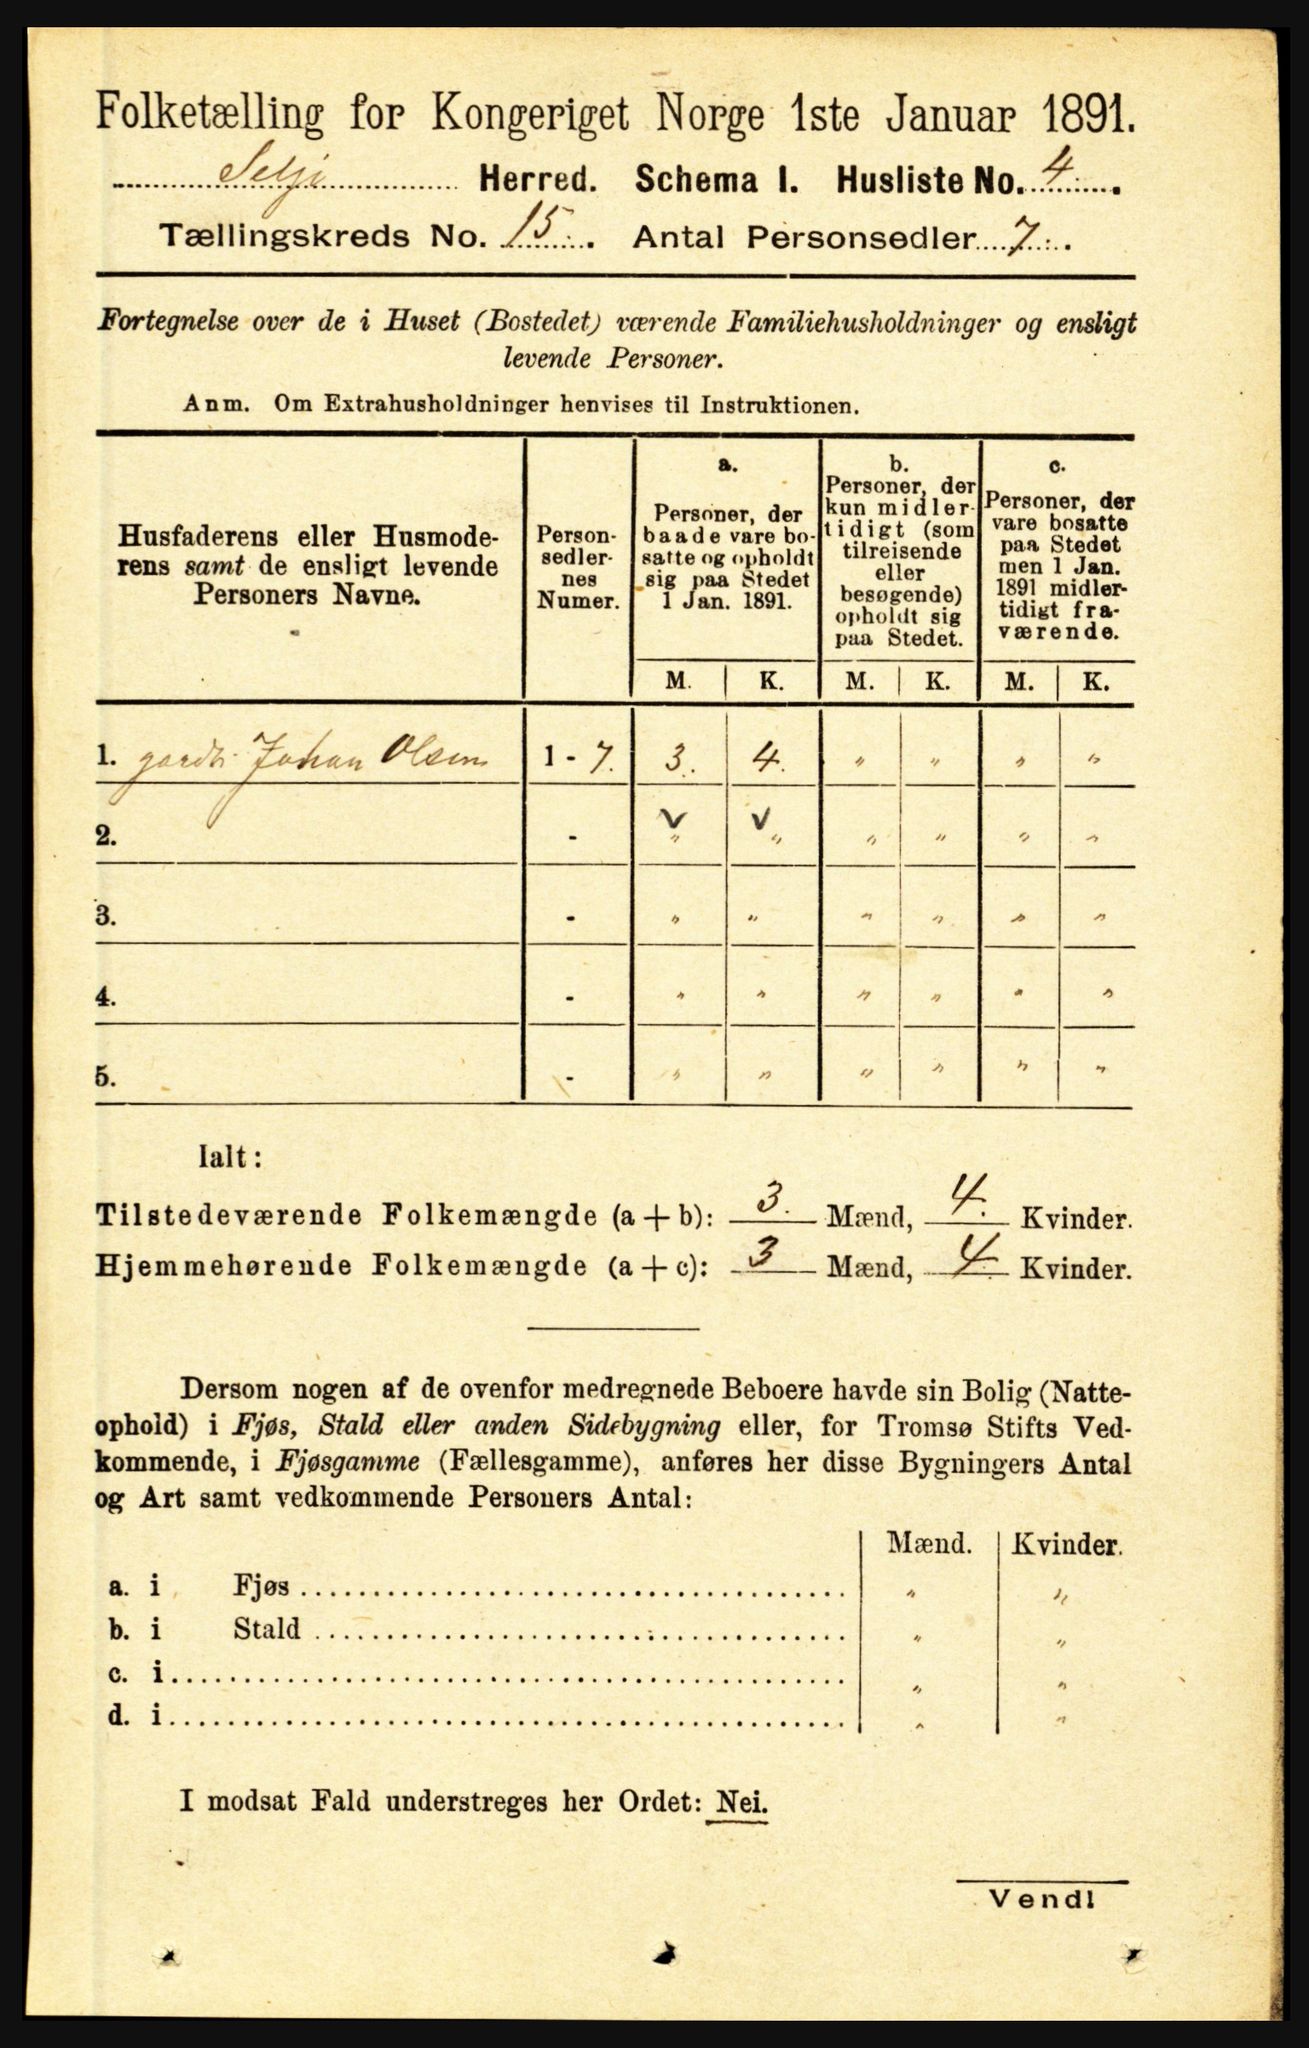 Folketælling for Kongeriget Norge 1ste Januar 1891.
Selje Herred. Schema I. Husliste No. 4.
Tællingskreds No. 15. Antal Personsedler 7.
Fortegnelse over de i Huset (Bostedet) værende Familiehusholdninger og ensligt
levende Personer.
Anm. Om Extrahusholdninger henvises til Instruktionen.
Husfaderens eller Husmode-
rens samt de ensligt levende
Personers Navne.
Person-
sedler-
nes
Numer.
a.
Personer, der
baade vare bo-
satte og opholdt
sig paa Stedet
1 Jan. 1891.
b.
Personer, der
kun midler-
tidigt (som
tilreisende
eller
besøgende)
opholdt sig
paa Stedet.
c.
Personer, der
vare bosatte
paa Stedet
men 1 Jan.
1891 midler-
tidigt fra-
værende.
M. K. M. K. M. K.
1. gardb. Johan Olsen 1 - 7. 3. 4. " " " "
2. - v " v " " " " "
3. - " " " " " "
4. - " " " " " "
5. - " " " " " "
Ialt:
Tilstedeværende Folkemængde (a + b): 3. Mænd, 4. Kvinder.
Hjemmehørende Folkemængde (a + c): 3 Mænd, 4. Kvinder.
Dersom nogen af de ovenfor medregnede Beboere havde sin Bolig (Natte-
ophold) i Fjøs, Stald eller anden Sidebygning eller, for Tromsø Stifts Ved-
kommende, i Fjøsgamme (Fællesgamme), anføres her disse Bygningers Antal
og Art samt vedkommende Personers Antal:
Mænd. Kvinder.
a. i Fjøs " "
b. i Stald " "
c. i " "
d. i " "
I modsat Fald understreges her Ordet: Nei.
Vend!